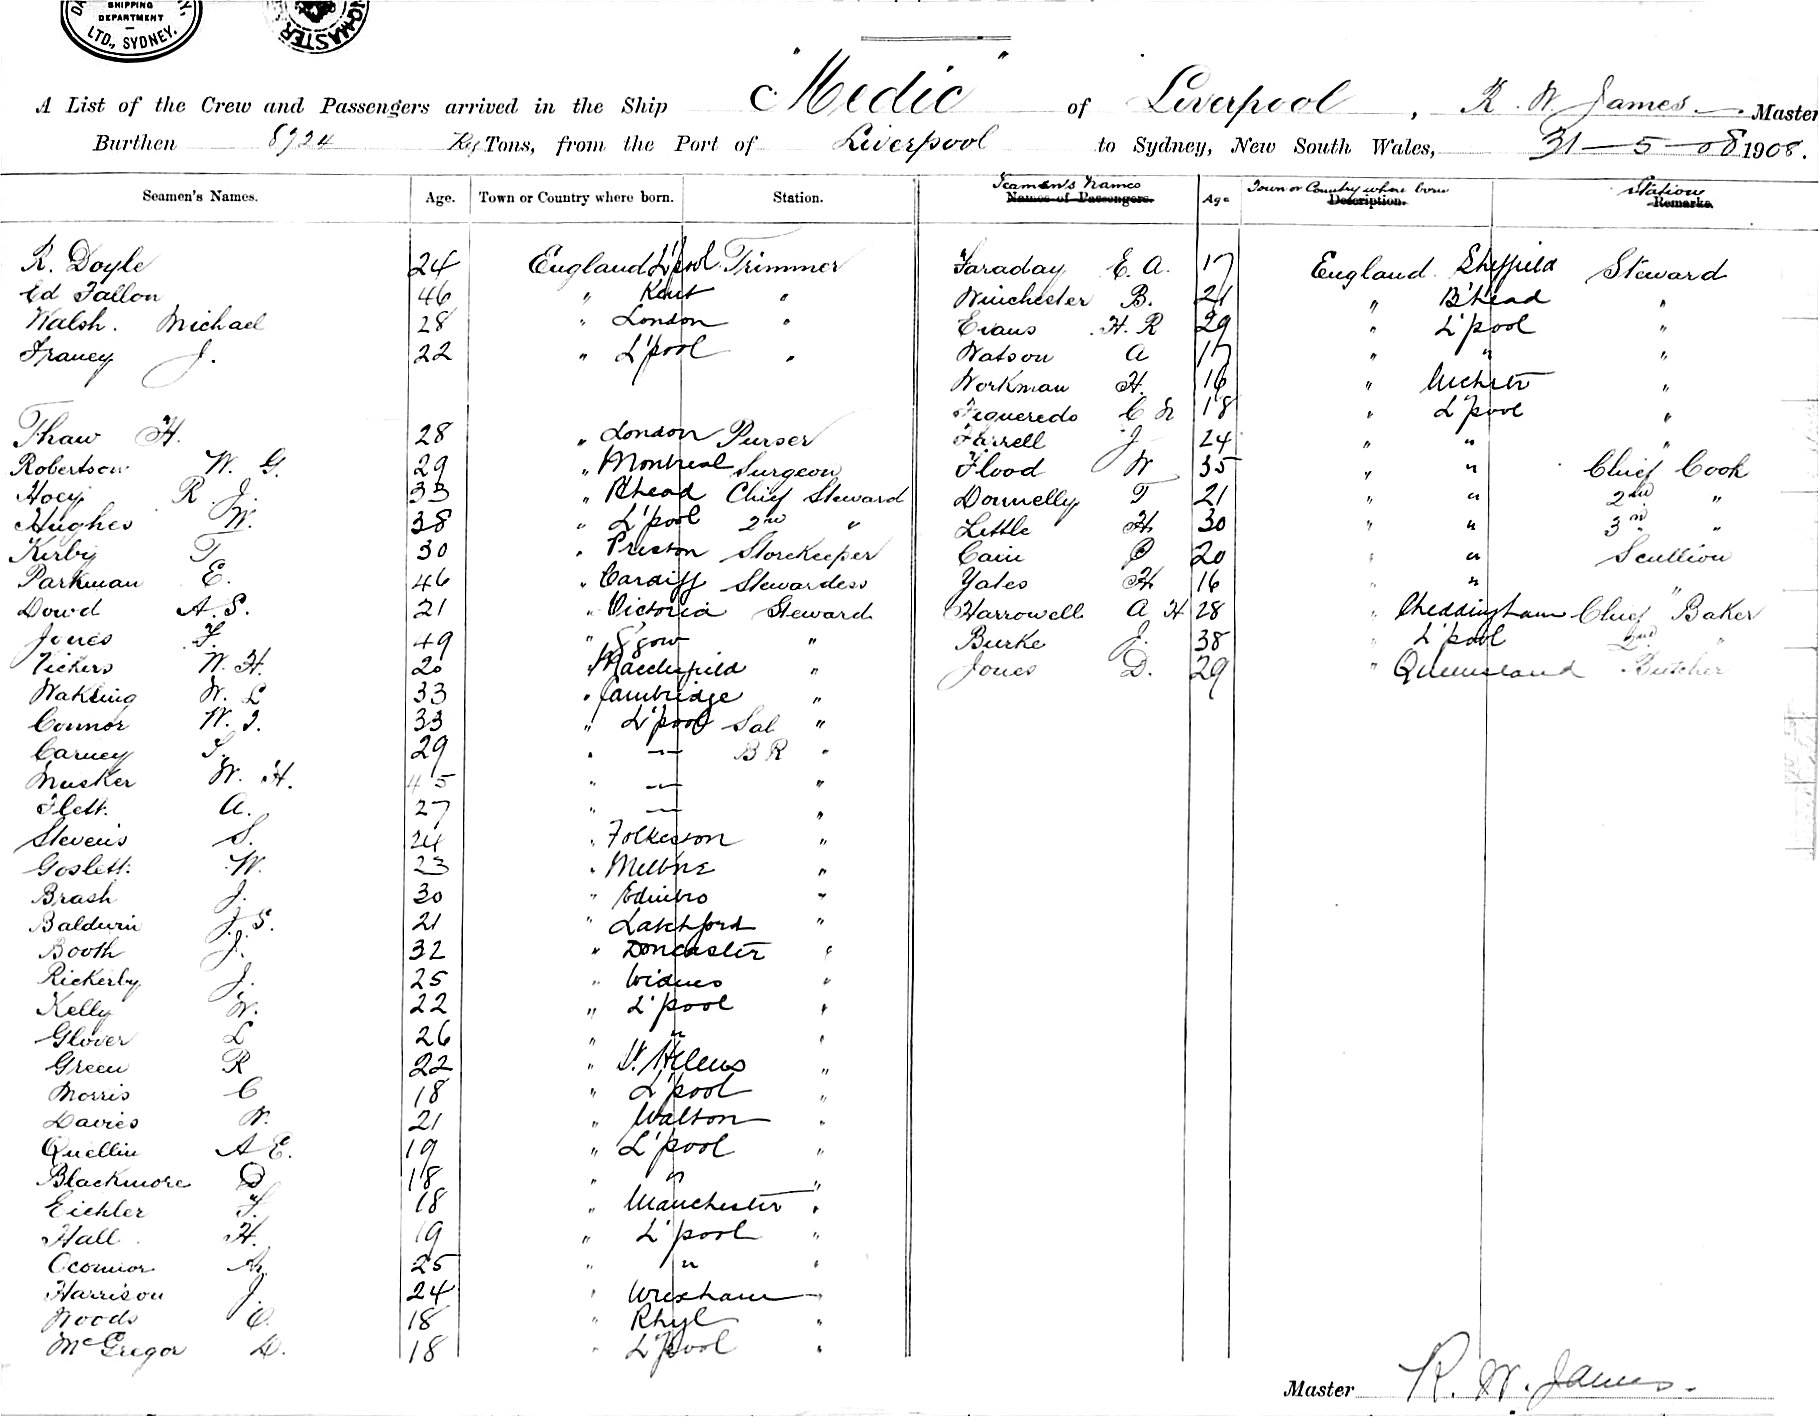 SHIPPING
DEPARTMENT
LTD., SYDNEY.
MASTER
A List of the Crew and Passengers arrived in the Ship "Medic" of Liverpool, R. W. James Master
Burthen 8924 Reg Tons, from the Port of Liverpool to Sydney, New South Wales, 31-5-08 1908.
Seamen's Names. Age. Town or Country where born. Station.
R. Doyle 24 England L'pool Trimmer
Ed Fallon 46 " Kent "
Walsh. Michael 28 " London "
Franey J. 22 " L'pool "
Thaw H. 28 " London Purser
Robertson W. G. 29 " Montreal Surgeon
Hoey R. J. 33 " B'head Chief Steward
Hughes W. 38 " L'pool 2nd "
Kirby T. 30 " Preston Storekeeper
Parkman E. 46 " Cardiff Stewardess
Dowd A. S. 21 " Victoria Steward
Jones F. 49 " G'gow "
Vickers W. H. 20 " Macclesfield "
Wakling W. L 33 " Cambridge "
Connor W. J. 33 " L'pool Sal "
Carney 29 " — B R "
Musker W. H. 45 " — "
Flett. A. 27 " — "
Stevens S. 24 " Folkeston "
Goslett. W. 23 " Melbne "
Brash J. 30 " Edinbro "
Baldwin J. S. 21 " Latchford "
Booth J. 32 " Doncaster "
Rickerby J. 25 " Widnes "
Kelly W. 22 " L'pool "
Glover L 26 " " "
Green R 22 " St. Helens "
Morris C 18 " L'pool "
Davies W. 21 " Walton "
Quellin A E. 19 " L'pool "
Blackmore D 18 " " "
Eichler F. 18 " Manchester "
Hall H. 19 " L'pool "
Oconnor 25 " " "
Harrison J. 24 " Wrexham "
Woods C. 18 " Rhyl "
McGregor D. 18 " L'pool "
Seamen's Names Age Town or Country where born Station
Names of Passengers. Description. Remarks.
Faraday E. A. 17 England. Sheffield Steward
Winchester B. 21 " B'head "
Evans H. R 29 " L'pool "
Watson A 17 " " "
Workman H. 16 " "
Figueredo C 18 " L'pool "
Farrell J 24 " " "
Flood W 35 " " Chief Cook
Donnelly T 21 " " 2nd "
Little H 30 " " 3rd "
Cain P 20 " " Scullion
Yates H 16 " " "
Harrowell A H 28 " Cheddingham Chief Baker
Burke J. 38 " L'pool 2nd "
Jones D. 29 " Queensland Butcher
Master R. W. James.